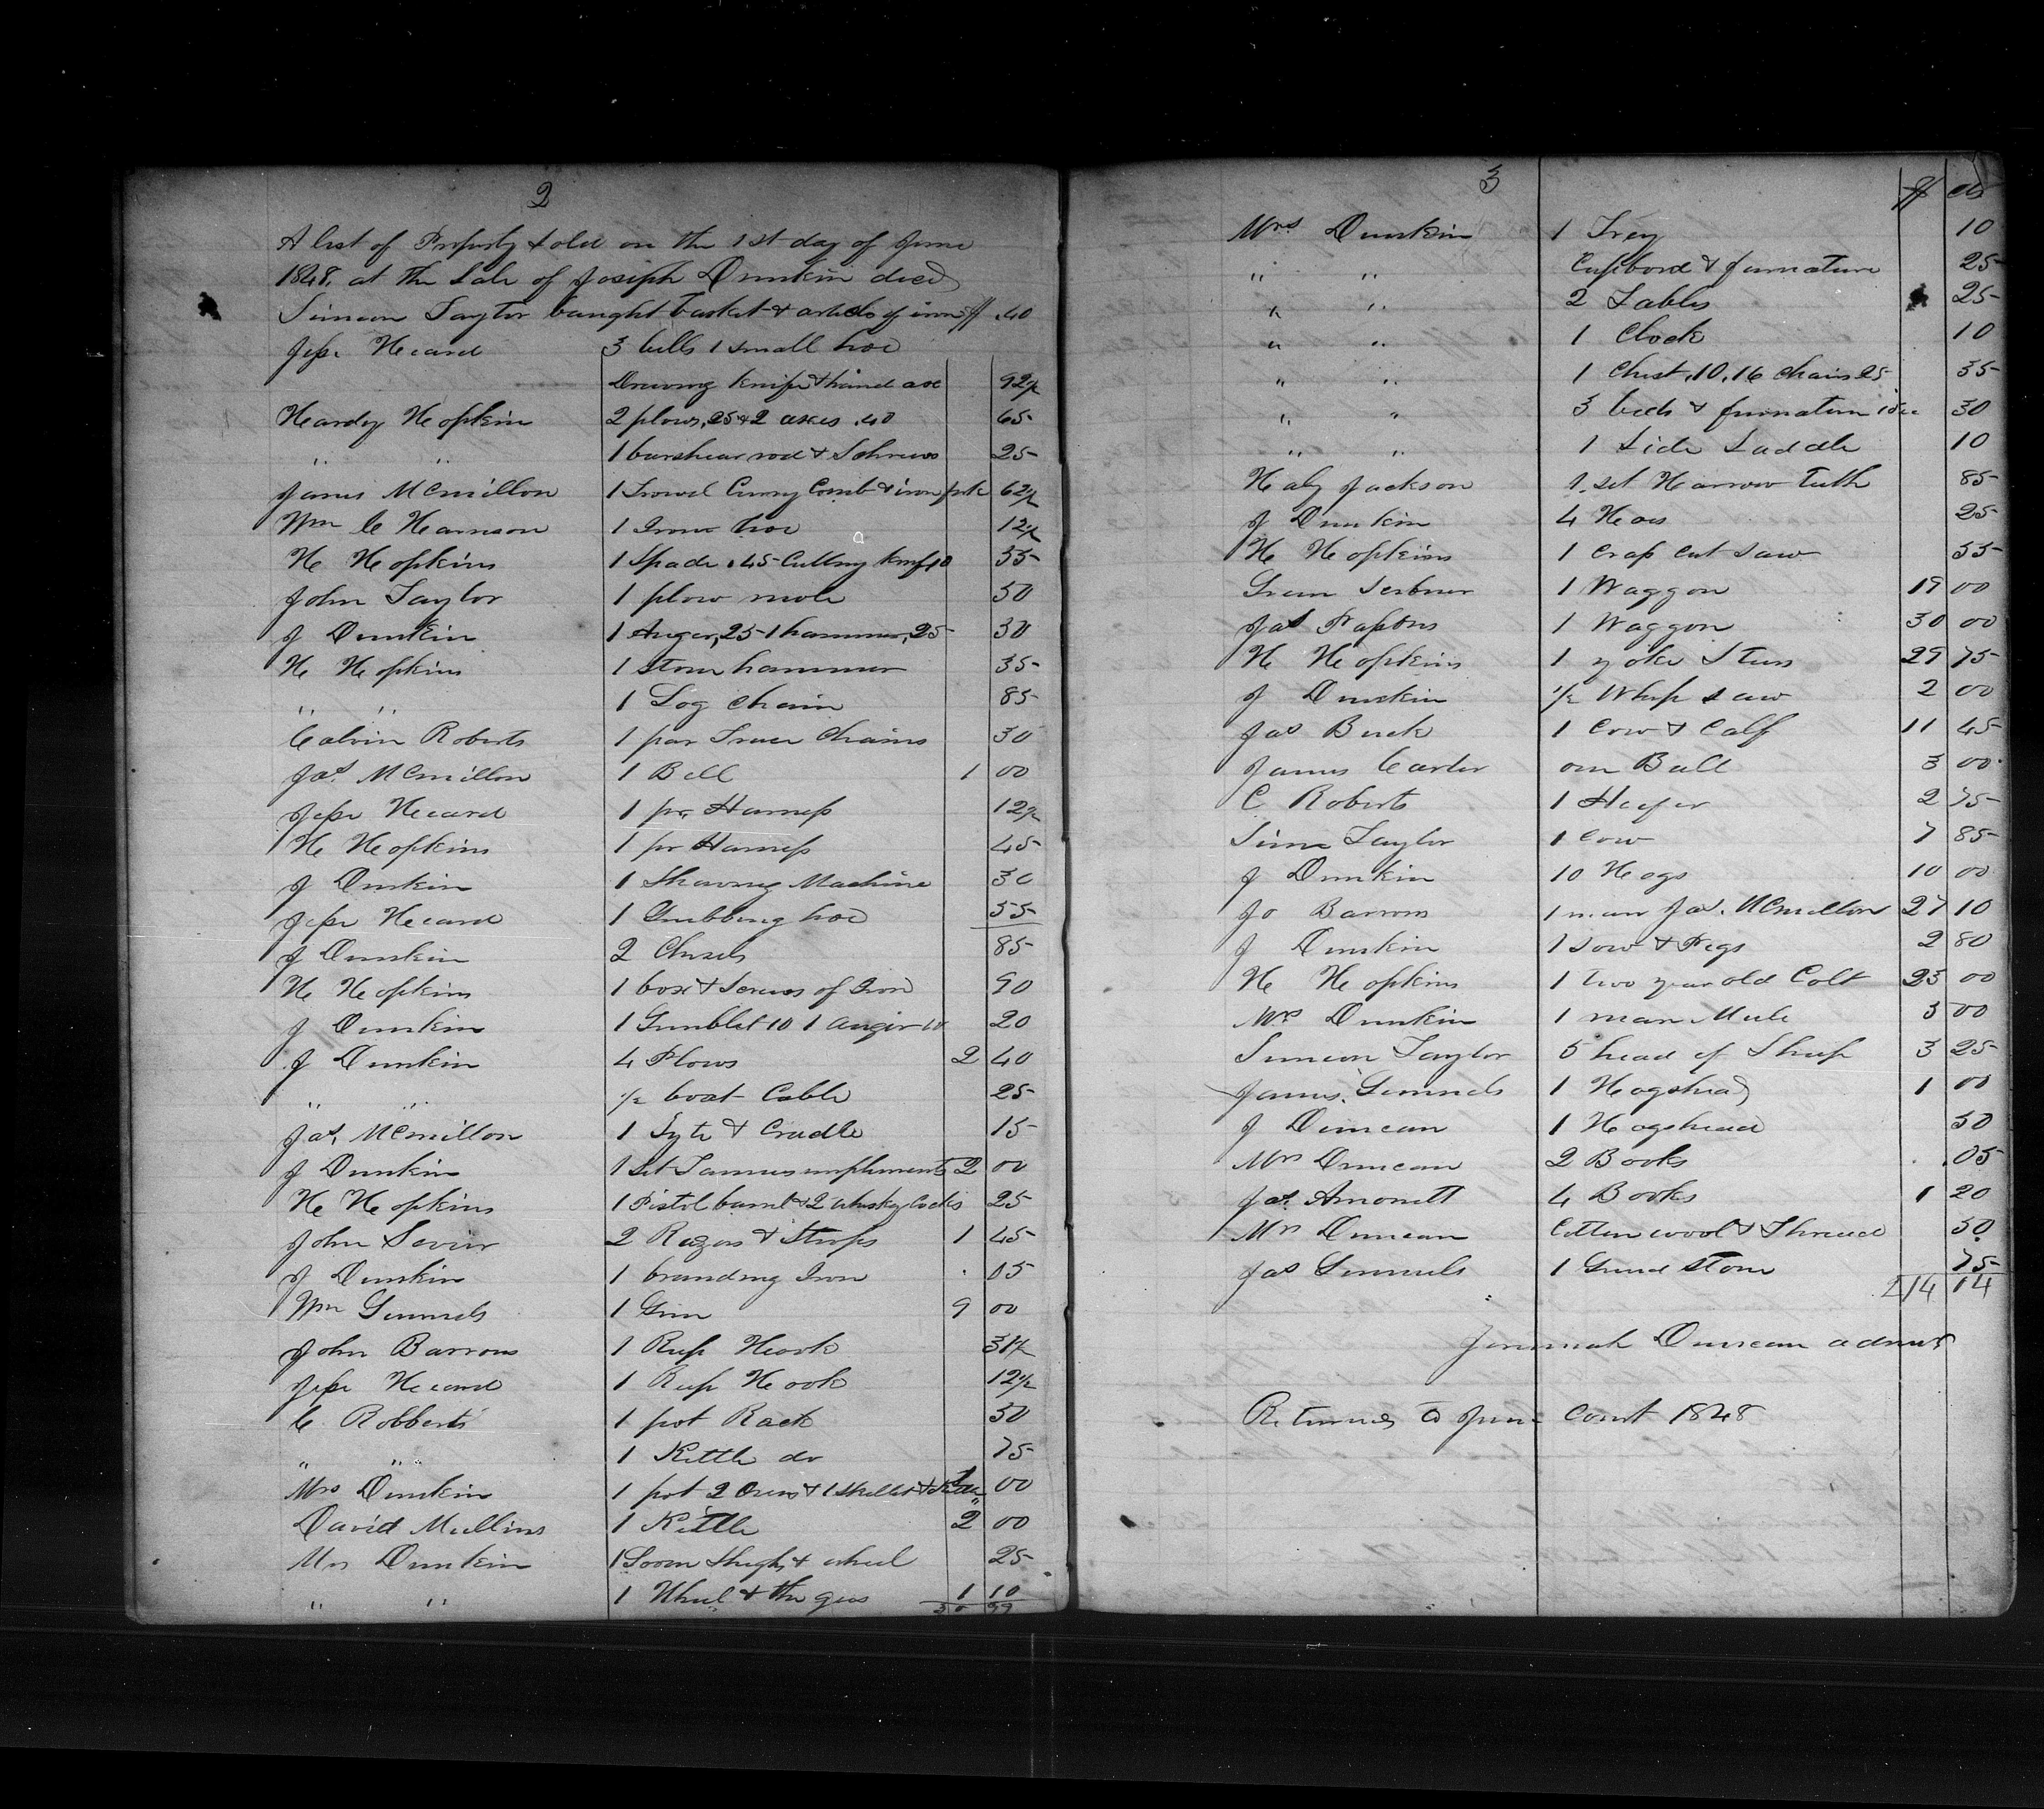 2
A list of Property sold on the 1st day of June
1848, at the Sale of Joseph Dunkin decd
Simeon Taylor bought basket & articls of iron $ .40
Jesse Heard 3 bells 1 small hoe
Drawing knife & hand axe 92½
Heardy Hopkin 2 plows, 25 & 2 axes .40 65
" " 1 barshear rod & Schrews 25
James McMillon 1 Trowel Curry Comb & iron fork 62½
Wm C Hearnson 1 Iron hoe 12½
H Hopkins 1 Spade .45 Cutting knif 10 55
John Taylor 1 plow mole 50
J Dunkin 1 Auger, 25 1 hammer, 25 30
H Hopkins 1 Stone hammer 35
" " 1 Log Chain 85
Calvin Roberts 1 par Trace Chains 30
Jas. McMillon 1 Bell 1 00
Jesse Heard 1 pr Hames 12½
H Hopkins 1 pr Hames 45
J Dunkin 1 Shaving Machine 30
Jesse Heard 1 Grubbing hoe 55
J Dunkin 2 Chisels 85
H Hopkins 1 box & Screws of Iron 90
J Dunkin 1 Gimblet 10 1 Auger 10 20
J Dunkin 4 Plows 2 40
" " ½ boat Cable 25
Jas. McMillon 1 Syte & Cradle 15
J Dunkin 1 Set Tanners impliments 2 00
H Hopkins 1 Pistol barrel & 2 whisky Cocks 25
John Sevier 2 Razors & Strops 1 45
J Dunkin 1 branding Iron . 05
Wm Gunnels 1 Gun 9 00
John Barrons 1 Reap Hook 31½
Jesse Heard 1 Reap Hook 12½
C Robberts 1 pot Rack 50
" " " 1 Kittle do 75
Mrs Dunkin 1 pot 2 Ovens & 1 Skillet & Kittle 1 00
David Mullins 1 Kittle 2 00
Mrs Dunkin 1 Loom & wheel 25
" " 1 Wheel & the gees 1 10
99
3
$ cts
Mrs Dunkin 1 Trey 10
" " Cupbord & furnature 25
" " 2 Tables 25
" " 1 Clock 10
" " 1 Chest, 10, 16 Chairs 25 35
" " 3 beds & furnature 30
" " 1 Side Saddle 10
Jackson 1 set Harrow Teeth 85
J Dunkin 4 Hoes 25
H Hopkins 1 Crap cut saw 55
Green 1 Waggon 19 00
Jas 1 Waggon 30 00
H Hopkins 1 yoke Steers 29 75
J Dunkin ½ Whip saw 2 00
Jas Buck 1 Cow & Calf 11 45
James Carter one Bull 3 00
C Roberts 1 Heefer 2 75
Sime Taylor 1 Cow 7 85
J Dunkin 10 Hogs 10 00
Jo Barrons 1 mare Jas. McMillon 27 10
J Dunkin 1 sow & Pigs 2 80
H Hopkins 1 two year old Colt 25 00
Mrs Dunkin 1 mare Mule 5 00
Simeon Taylor 5 head of Sheep 3 25
James Gunnels 1 Hogshead 1 00
J Duncan 1 Hogshead 50
Mrs Duncan 2 Books .05
Jas. Amonett 4 Books 1 20
Mrs Duncan Cotten wool & Thread 50
Jas Gunnels 1 Grind Stone 75
214 14
Jeremiah Duncan admr
Returned to June Court 1848